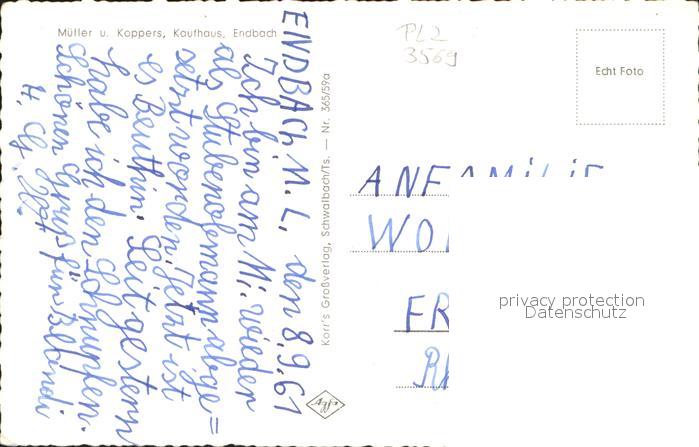 Müller u. Koppers, Kaufhaus, Endbach
ENDBACH M.L. den 8.9.61
Ich bin am Mi. wieder
als Stubenofmann abge=
setzt worden. Jetzt ist
es Beuthin. Seit gestern
habe ich den Schnupfen.
Schönen Gruß für
H.
Korr's Großverlag, Schwalbach/Ts. — Nr. 365/59a
Agfa
PL2
3569
Echt Foto
AN FAMILIE
WO
FR
privacy protection
Datenschutz